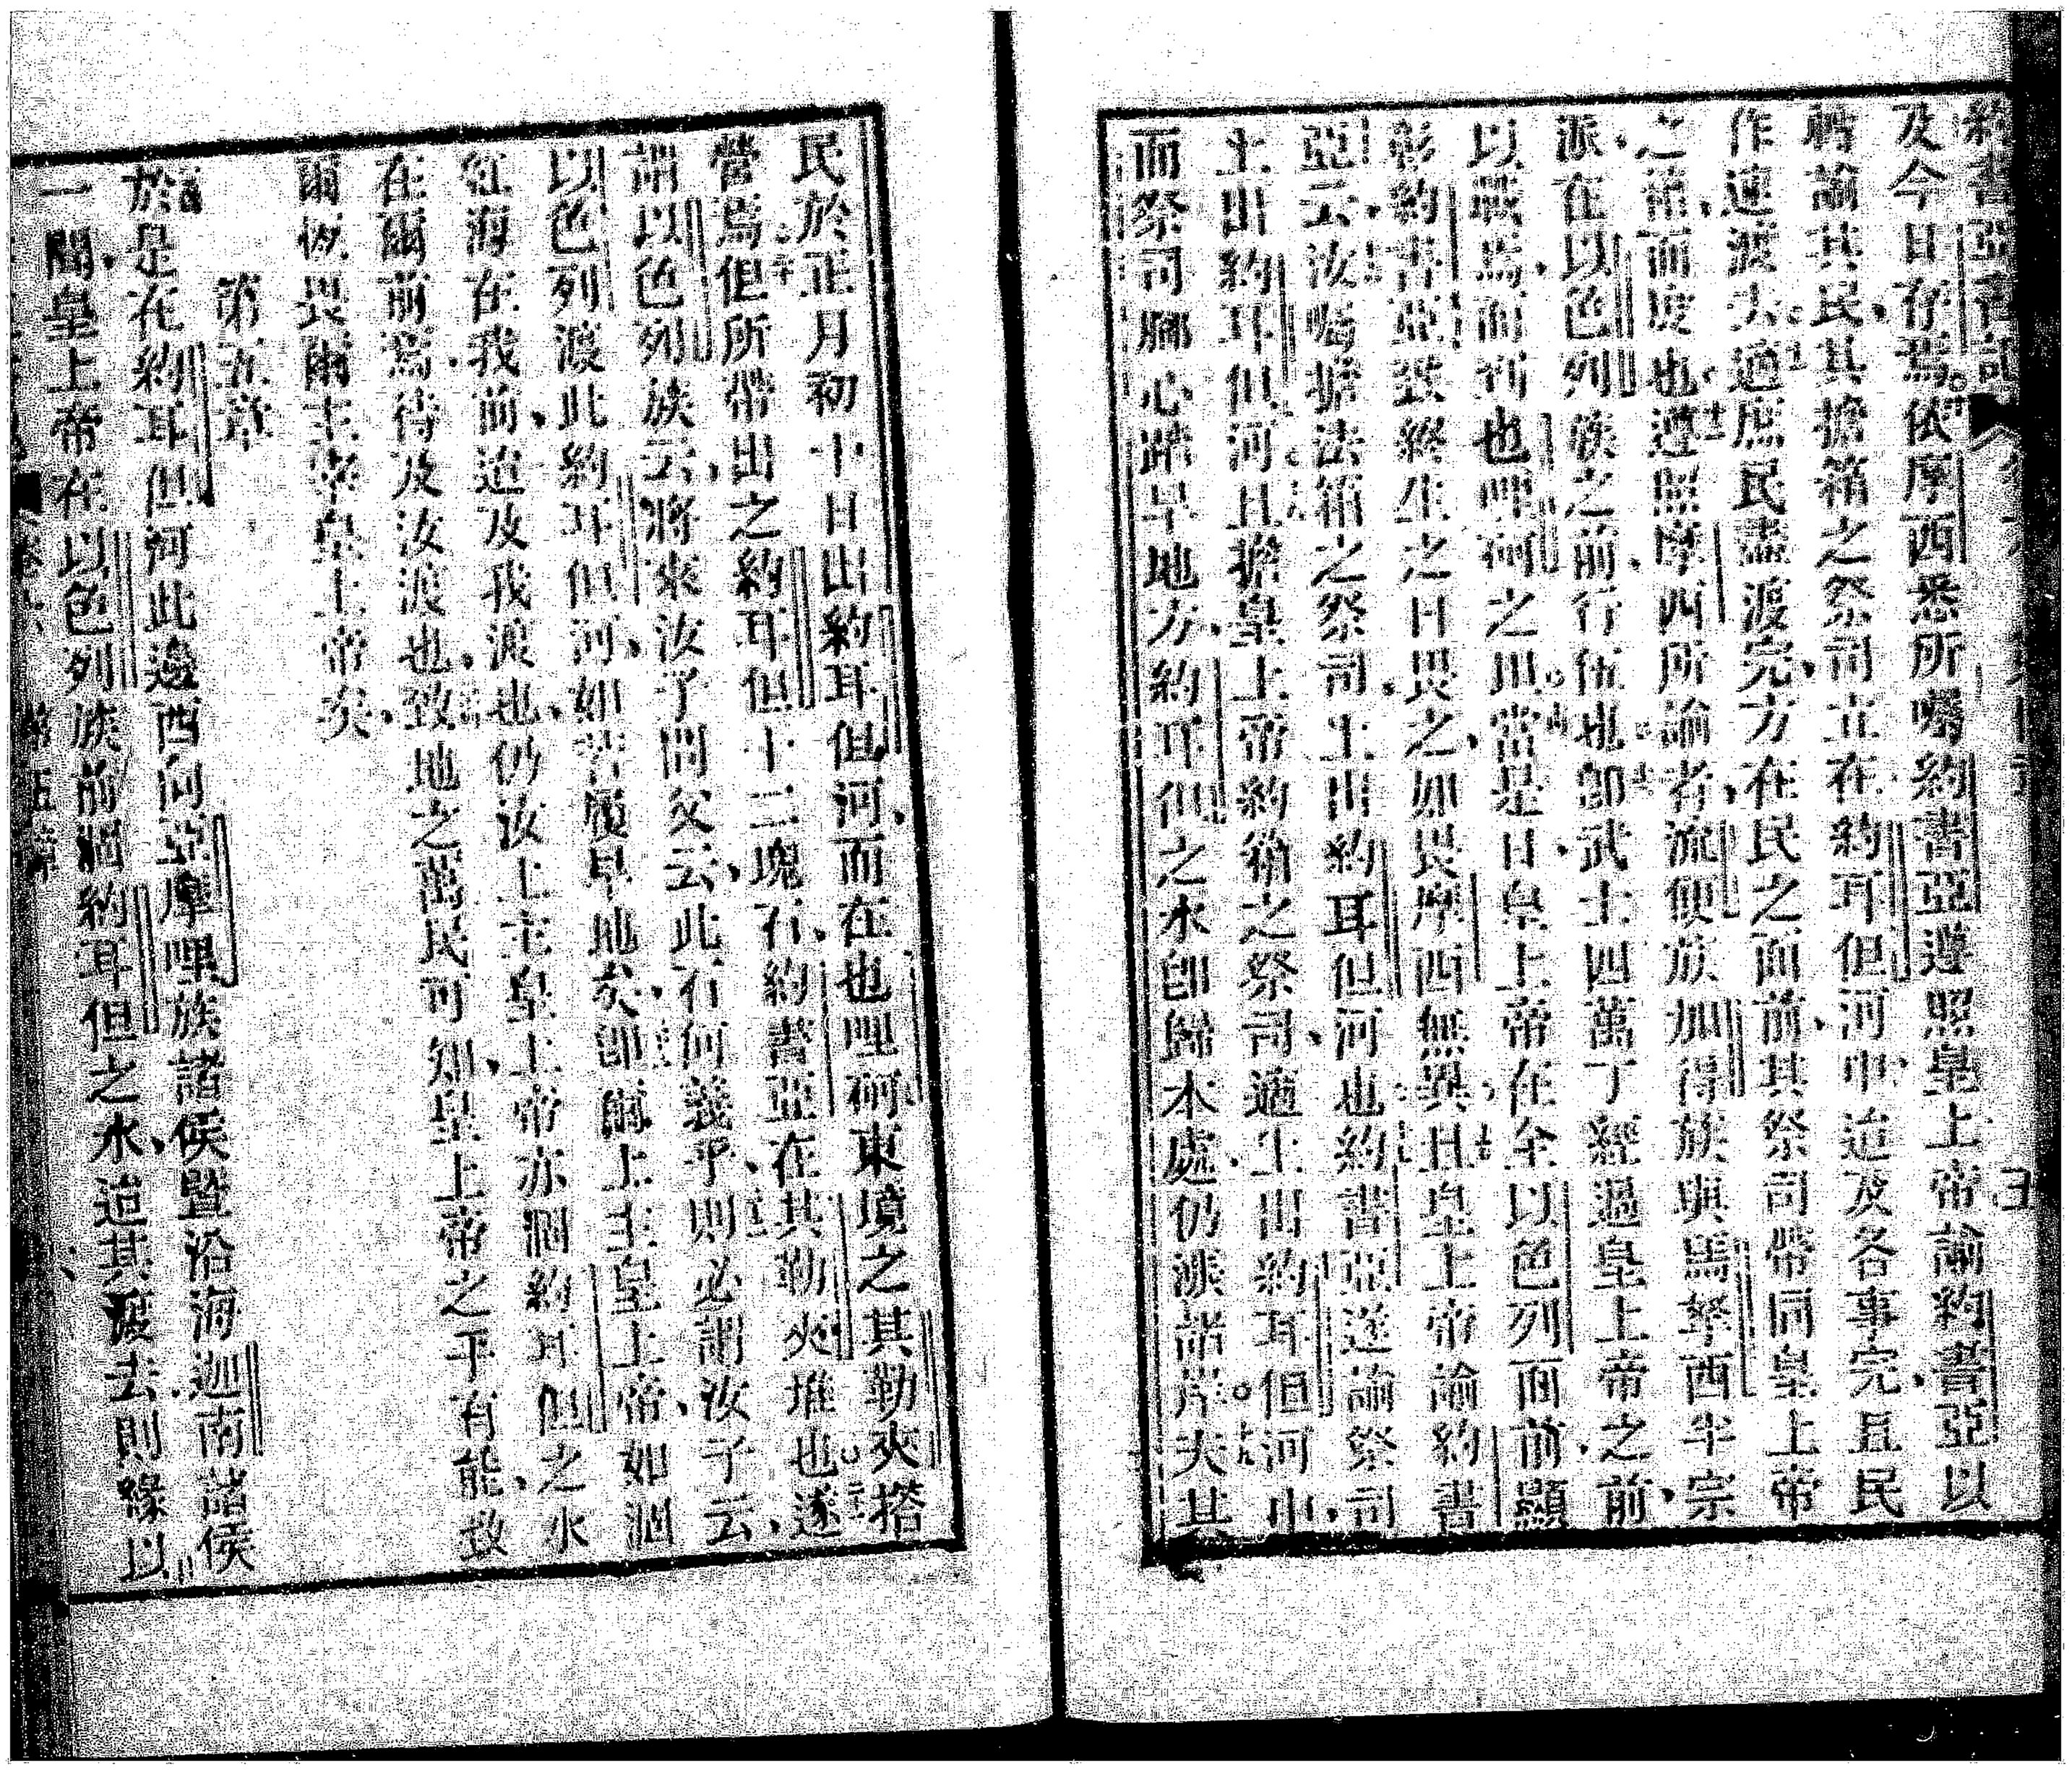 及今日存焉依摩西悉所囑約書亞遵照皇上帝諭約書亞以
轉諭其民其擔箱之祭司立在約耳但河中迨及各事完且民
作速渡去適庶民盡渡完方在民之面前其祭司帶同皇上帝
之箱而度也遵照摩西所諭者流便族加得族與馬拏西半宗
派在以色列族之前行伍也卽武士四萬丁經過皇上帝之前
以戰焉而到也哩河之川當是日皇上帝在全以色列面前顯
彰約書亞致終生之日畏之如畏摩西無異且皇上帝諭約書
亞云汝囑擔法箱之祭司上出約耳但河也約書亞遂諭祭司
上出約耳但河且擔皇上帝約箱之祭司適上出約耳但河中
而祭司腳心踏旱地方約耳但之水卽歸本處仍漲諸岸夫其
民於正月初十日出約耳但河而在也哩河東境之其勒夾搭
營焉但所帶出之約耳但十二塊石約書亞在其勒夾堆也遂
謂以色列族云將來汝子問父云此石何義乎則必謂汝子云
以色列渡此約耳但河如踏履旱地矣卽爾上主皇上帝如涸
紅海在我前迨及我渡也仍汝上主皇上帝亦涸約耳但之水
在爾前焉待及汝渡也致地之萬民可知皇上帝之手有能致
爾恢畏爾主宰皇上帝矣
第五章
於是在約耳但河此邊西向亞摩哩族諸侯暨沿海迦南諸侯
一聞皇上帝在以色列族前涸約耳但之水迨其渡去則緣以